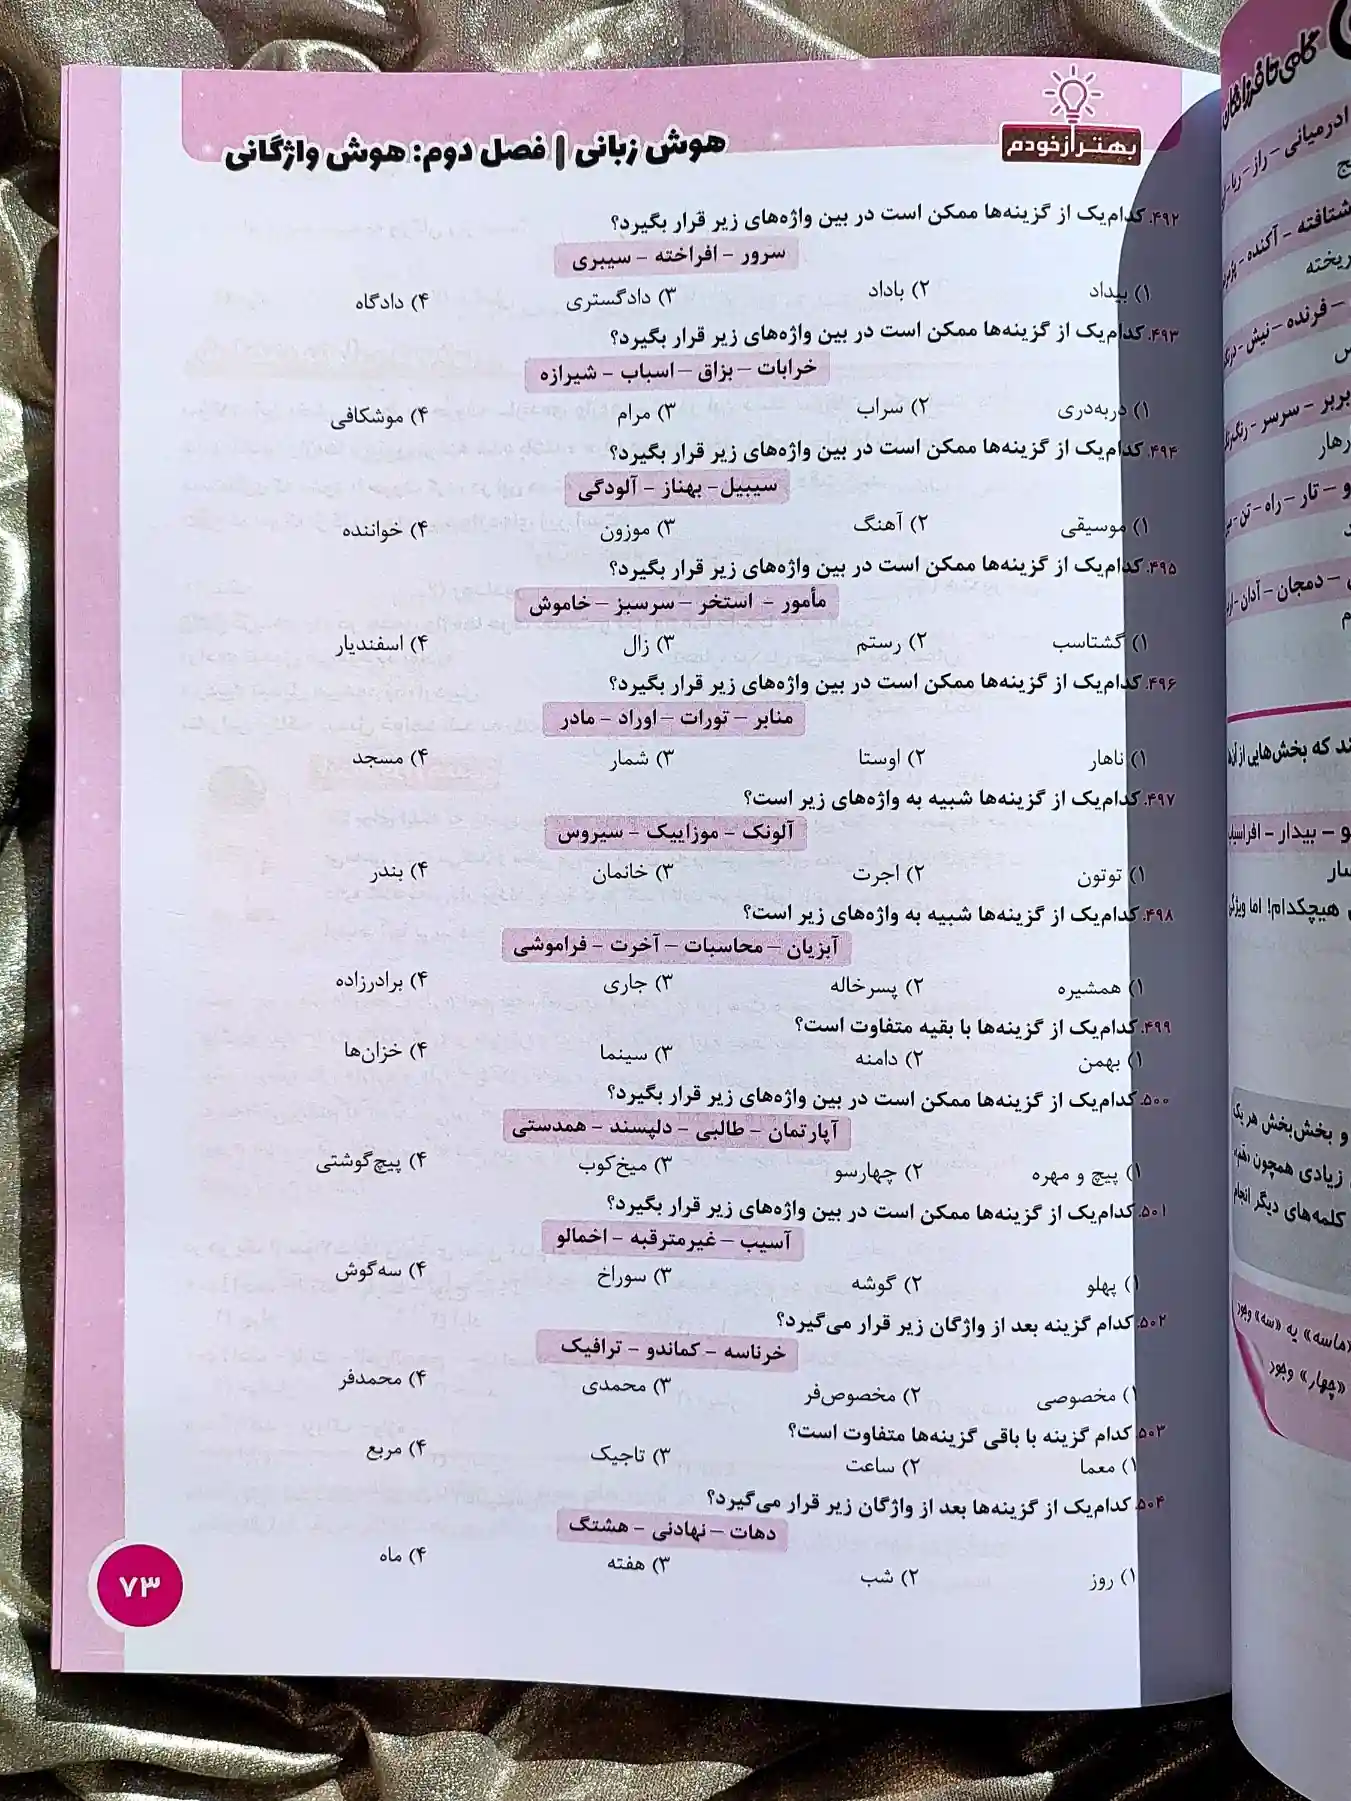 بهتر از خودم
هوش زبانی | فصل دوم: هوش واژگانی
۴۹۲. کدام‌یک از گزینه‌ها ممکن است در بین واژه‌های زیر قرار بگیرد؟
سرور – افراخته – سیبری
۱) بیداد ۲) باداد ۳) دادگستری ۴) دادگاه
۴۹۳. کدام‌یک از گزینه‌ها ممکن است در بین واژه‌های زیر قرار بگیرد؟
خرابات – بزاق – اسباب – شیرازه
۱) دربه‌دری ۲) سراب ۳) مرام ۴) موشکافی
۴۹۴. کدام‌یک از گزینه‌ها ممکن است در بین واژه‌های زیر قرار بگیرد؟
سیبیل – بهناز – آلودگی
۱) موسیقی ۲) آهنگ ۳) موزون ۴) خواننده
۴۹۵. کدام‌یک از گزینه‌ها ممکن است در بین واژه‌های زیر قرار بگیرد؟
مأمور – استخر – سرسبز – خاموش
۱) گشتاسب ۲) رستم ۳) زال ۴) اسفندیار
۴۹۶. کدام‌یک از گزینه‌ها ممکن است در بین واژه‌های زیر قرار بگیرد؟
منابر – تورات – اوراد – مادر
۱) ناهار ۲) اوستا ۳) شمار ۴) مسجد
۴۹۷. کدام‌یک از گزینه‌ها شبیه به واژه‌های زیر است؟
آلونک – موزاییک – سیروس
۱) توتون ۲) اجرت ۳) خانمان ۴) بندر
۴۹۸. کدام‌یک از گزینه‌ها شبیه به واژه‌های زیر است؟
آبزیان – محاسبات – آخرت – فراموشی
۱) همشیره ۲) پسرخاله ۳) جاری ۴) برادرزاده
۴۹۹. کدام‌یک از گزینه‌ها با بقیه متفاوت است؟
۱) بهمن ۲) دامنه ۳) سینما ۴) خزان‌ها
۵۰۰. کدام‌یک از گزینه‌ها ممکن است در بین واژه‌های زیر قرار بگیرد؟
آپارتمان – طالبی – دلپسند – همدستی
۱) پیچ و مهره ۲) چهارسو ۳) میخ‌کوب ۴) پیچ‌گوشتی
۵۰۱. کدام‌یک از گزینه‌ها ممکن است در بین واژه‌های زیر قرار بگیرد؟
آسیب – غیرمترقبه – اخمالو
۱) پهلو ۲) گوشه ۳) سوراخ ۴) سه‌گوش
۵۰۲. کدام گزینه بعد از واژگان زیر قرار می‌گیرد؟
خرناسه – کماندو – ترافیک
۱) مخصوصی ۲) مخصوص‌فر ۳) محمدی ۴) محمدفر
۵۰۳. کدام گزینه با باقی گزینه‌ها متفاوت است؟
۱) معما ۲) ساعت ۳) تاجیک ۴) مربع
۵۰۴. کدام‌یک از گزینه‌ها بعد از واژگان زیر قرار می‌گیرد؟
دهات – نهادنی – هشتگ
۱) روز ۲) شب ۳) هفته ۴) ماه
۷۳
گامی تا فرزانگان
ادرمیانی – راز – ربا
شتافته – آکنده
ریخته
فرنده – نیش
بربر – سرسر
تار – راه – تن
دمجان – آدان
ند که بخش‌هایی از آن‌ها
بیدار – افراسیاب
هیچکدام! اما ویژگی
و بخش‌بخش هر یک
زیادی همچون «قند»
کلمه‌های دیگر انجام
«ماسه» یه «سه» وجود
«چهار» وجود